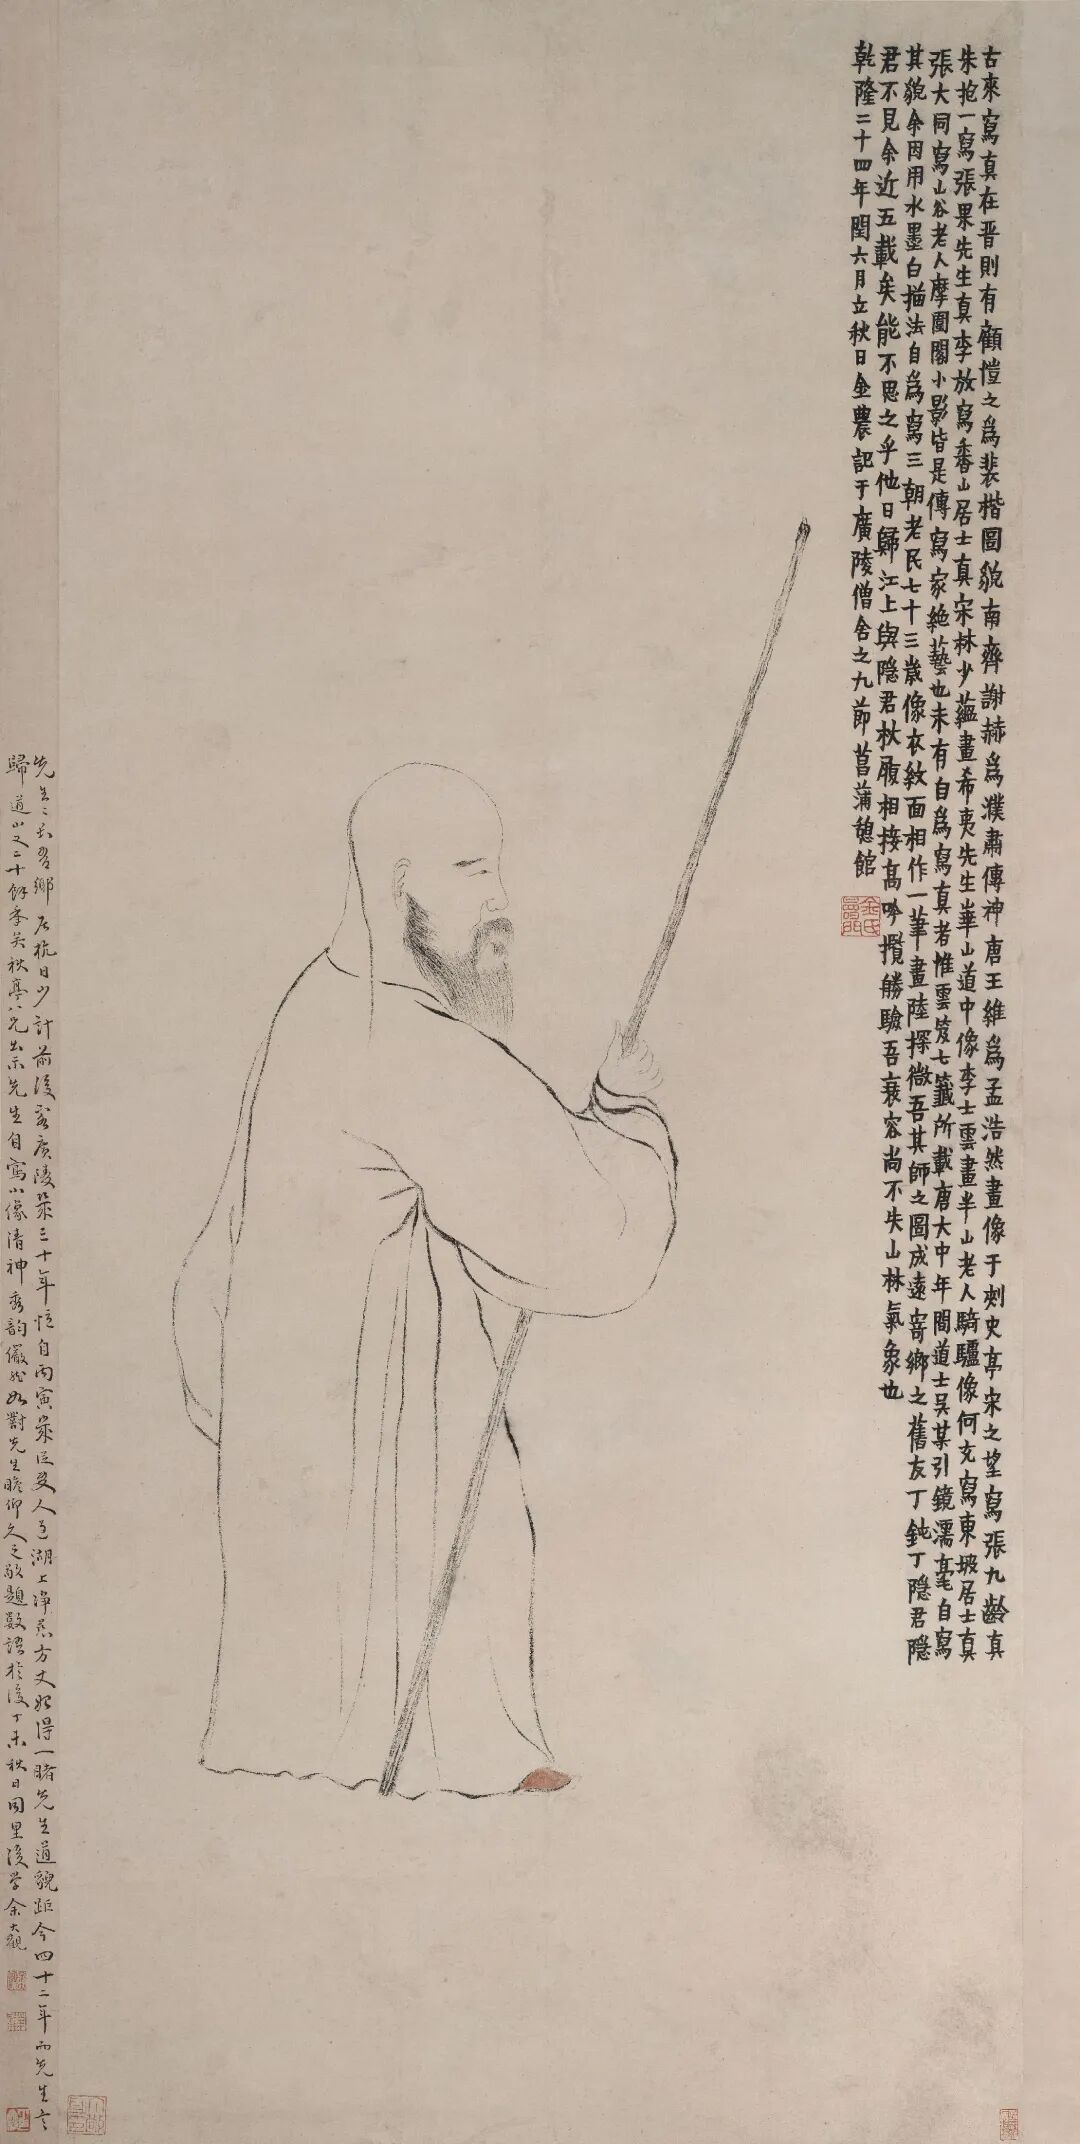 古來寫真在晋則有顧愷之爲裴楷圖貌南齊謝赫爲濮肅傳神唐王維爲孟浩然畫像于刺史亭宋之望寫張九齡真
朱抱一寫張果先生真李放寫香山居士真宋林少藴畫希夷先生華山道中像李士雲畫半山老人騎驢像何充寫東坡居士真
張大同寫山谷老人摩圍閣小影皆是傳寫家絶藝也未有自爲寫真者惟雲笈七籤所載唐大中年間道士吴某引鏡濡毫自寫
其貌余因用水墨白描法自爲寫三朝老民七十三歲像衣紋面相作一筆畫陸探微吾其師之圖成遠寄鄉之舊友丁鈍丁隱君隱
君不見余近五載矣能不思之乎他日歸江上與隱君杖履相接高吟攬勝驗吾衰容尚不失山林氣象也
乾隆二十四年閏六月立秋日金農記于廣陵僧舍之九節菖蒲憩館
金氏
先生吾鄉居杭日少計前後客廣陵幾三十年憶自丙寅歲人湖上淨慈方丈始得一睹先生道貌距今四十二年而先生亡
歸道山又二十餘年矣秋亭八兄出示先生自寫小像清神秀韵儼然如對先生瞻仰久之敬題數語於後丁未秋日同里後學余大觀